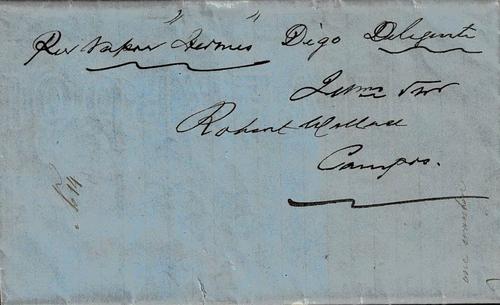 Per Vapor "Hermes" Digo Deligente
Illmo Snr
Robert Wallace
Campos.